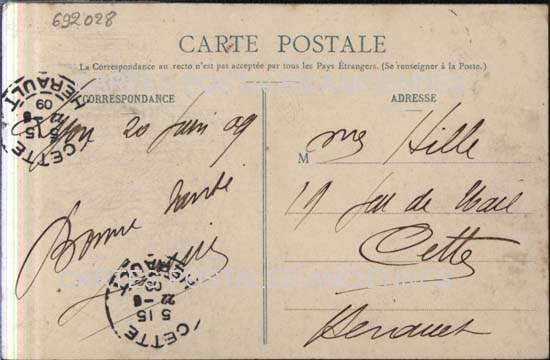 692028
CARTE POSTALE
La Correspondance au recto n'est pas acceptée par tous les Pays Étrangers. (Se renseigner à la Poste.)
CORRESPONDANCE
20 Juin 09
Bonne Santé
CETTE
HÉRAULT
5 15
22 -6
09
CETTE
HÉRAULT
5 15
22 -6
09
ADRESSE
M me Hille
19
Cette
Herault
CARTES POSTALES ANCIENNES